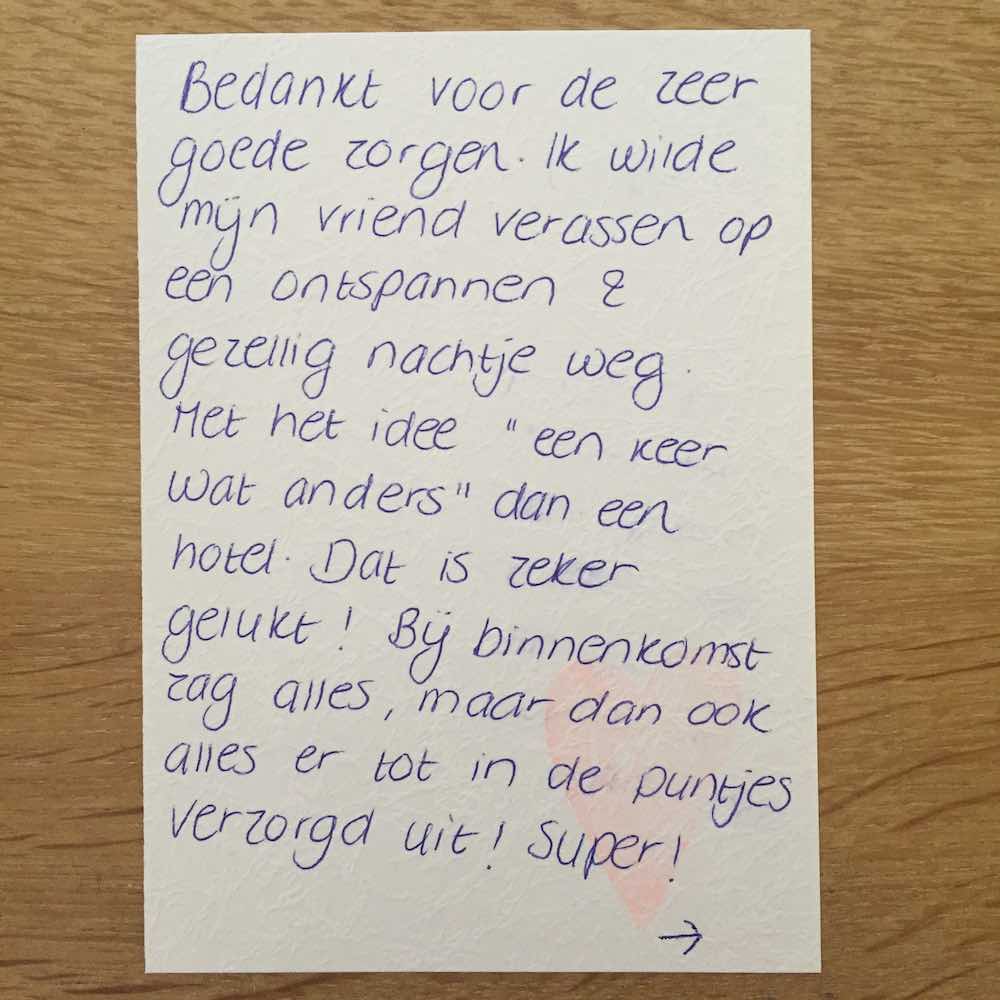 Bedankt voor de zeer
goede zorgen. Ik wilde
mijn vriend verassen op
een ontspannen &
gezellig nachtje weg.
Met het idee "een keer
wat anders" dan een
hotel. Dat is zeker
gelukt! Bij binnenkomst
zag alles, maar dan ook
alles er tot in de puntjes
verzorgd uit! Super!
→